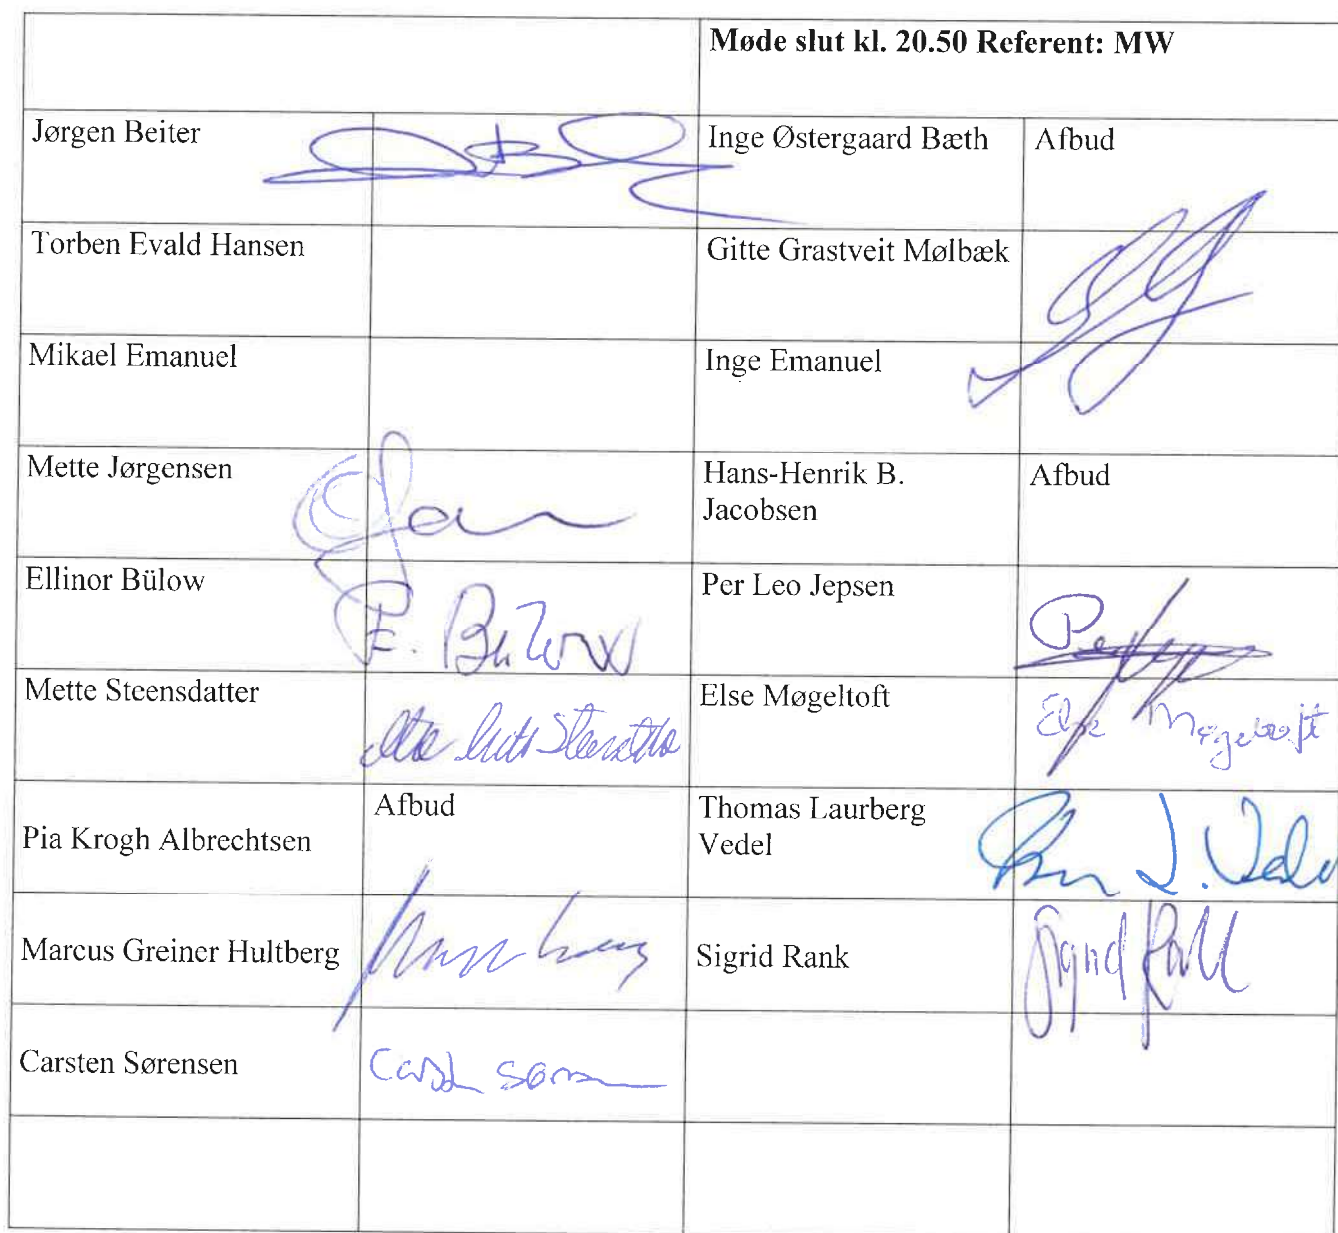 Møde slut kl. 20.50 Referent: MW
Jørgen Beiter
Inge Østergaard Bæth Afbud
Torben Evald Hansen
Gitte Grastveit Mølbæk
Mikael Emanuel
Inge Emanuel
Mette Jørgensen
Hans-Henrik B.
Jacobsen
Afbud
Ellinor Bülow
E. Bülow
Per Leo Jepsen
Mette Steensdatter
Else Møgeltoft
Else Møgeltoft
Pia Krogh Albrechtsen
Afbud
Thomas Laurberg
Vedel
Marcus Greiner Hultberg
Sigrid Rank
Sigrid Rank
Carsten Sørensen